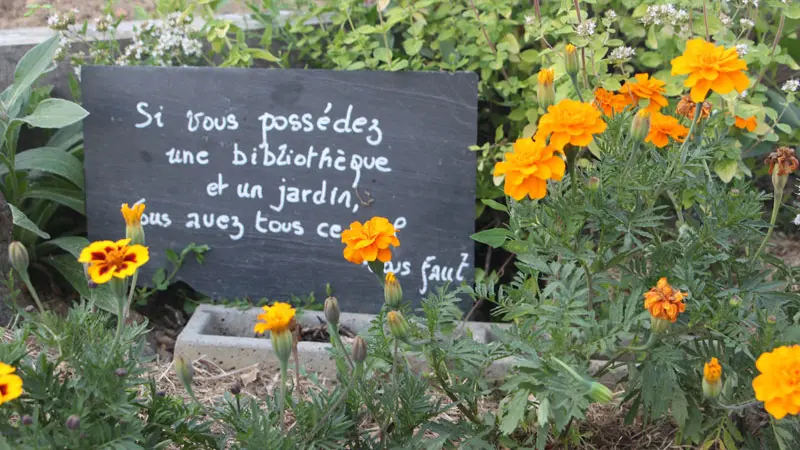 Si vous possédez
une bibliothèque
et un jardin,
vous avez tous ce
vous faut